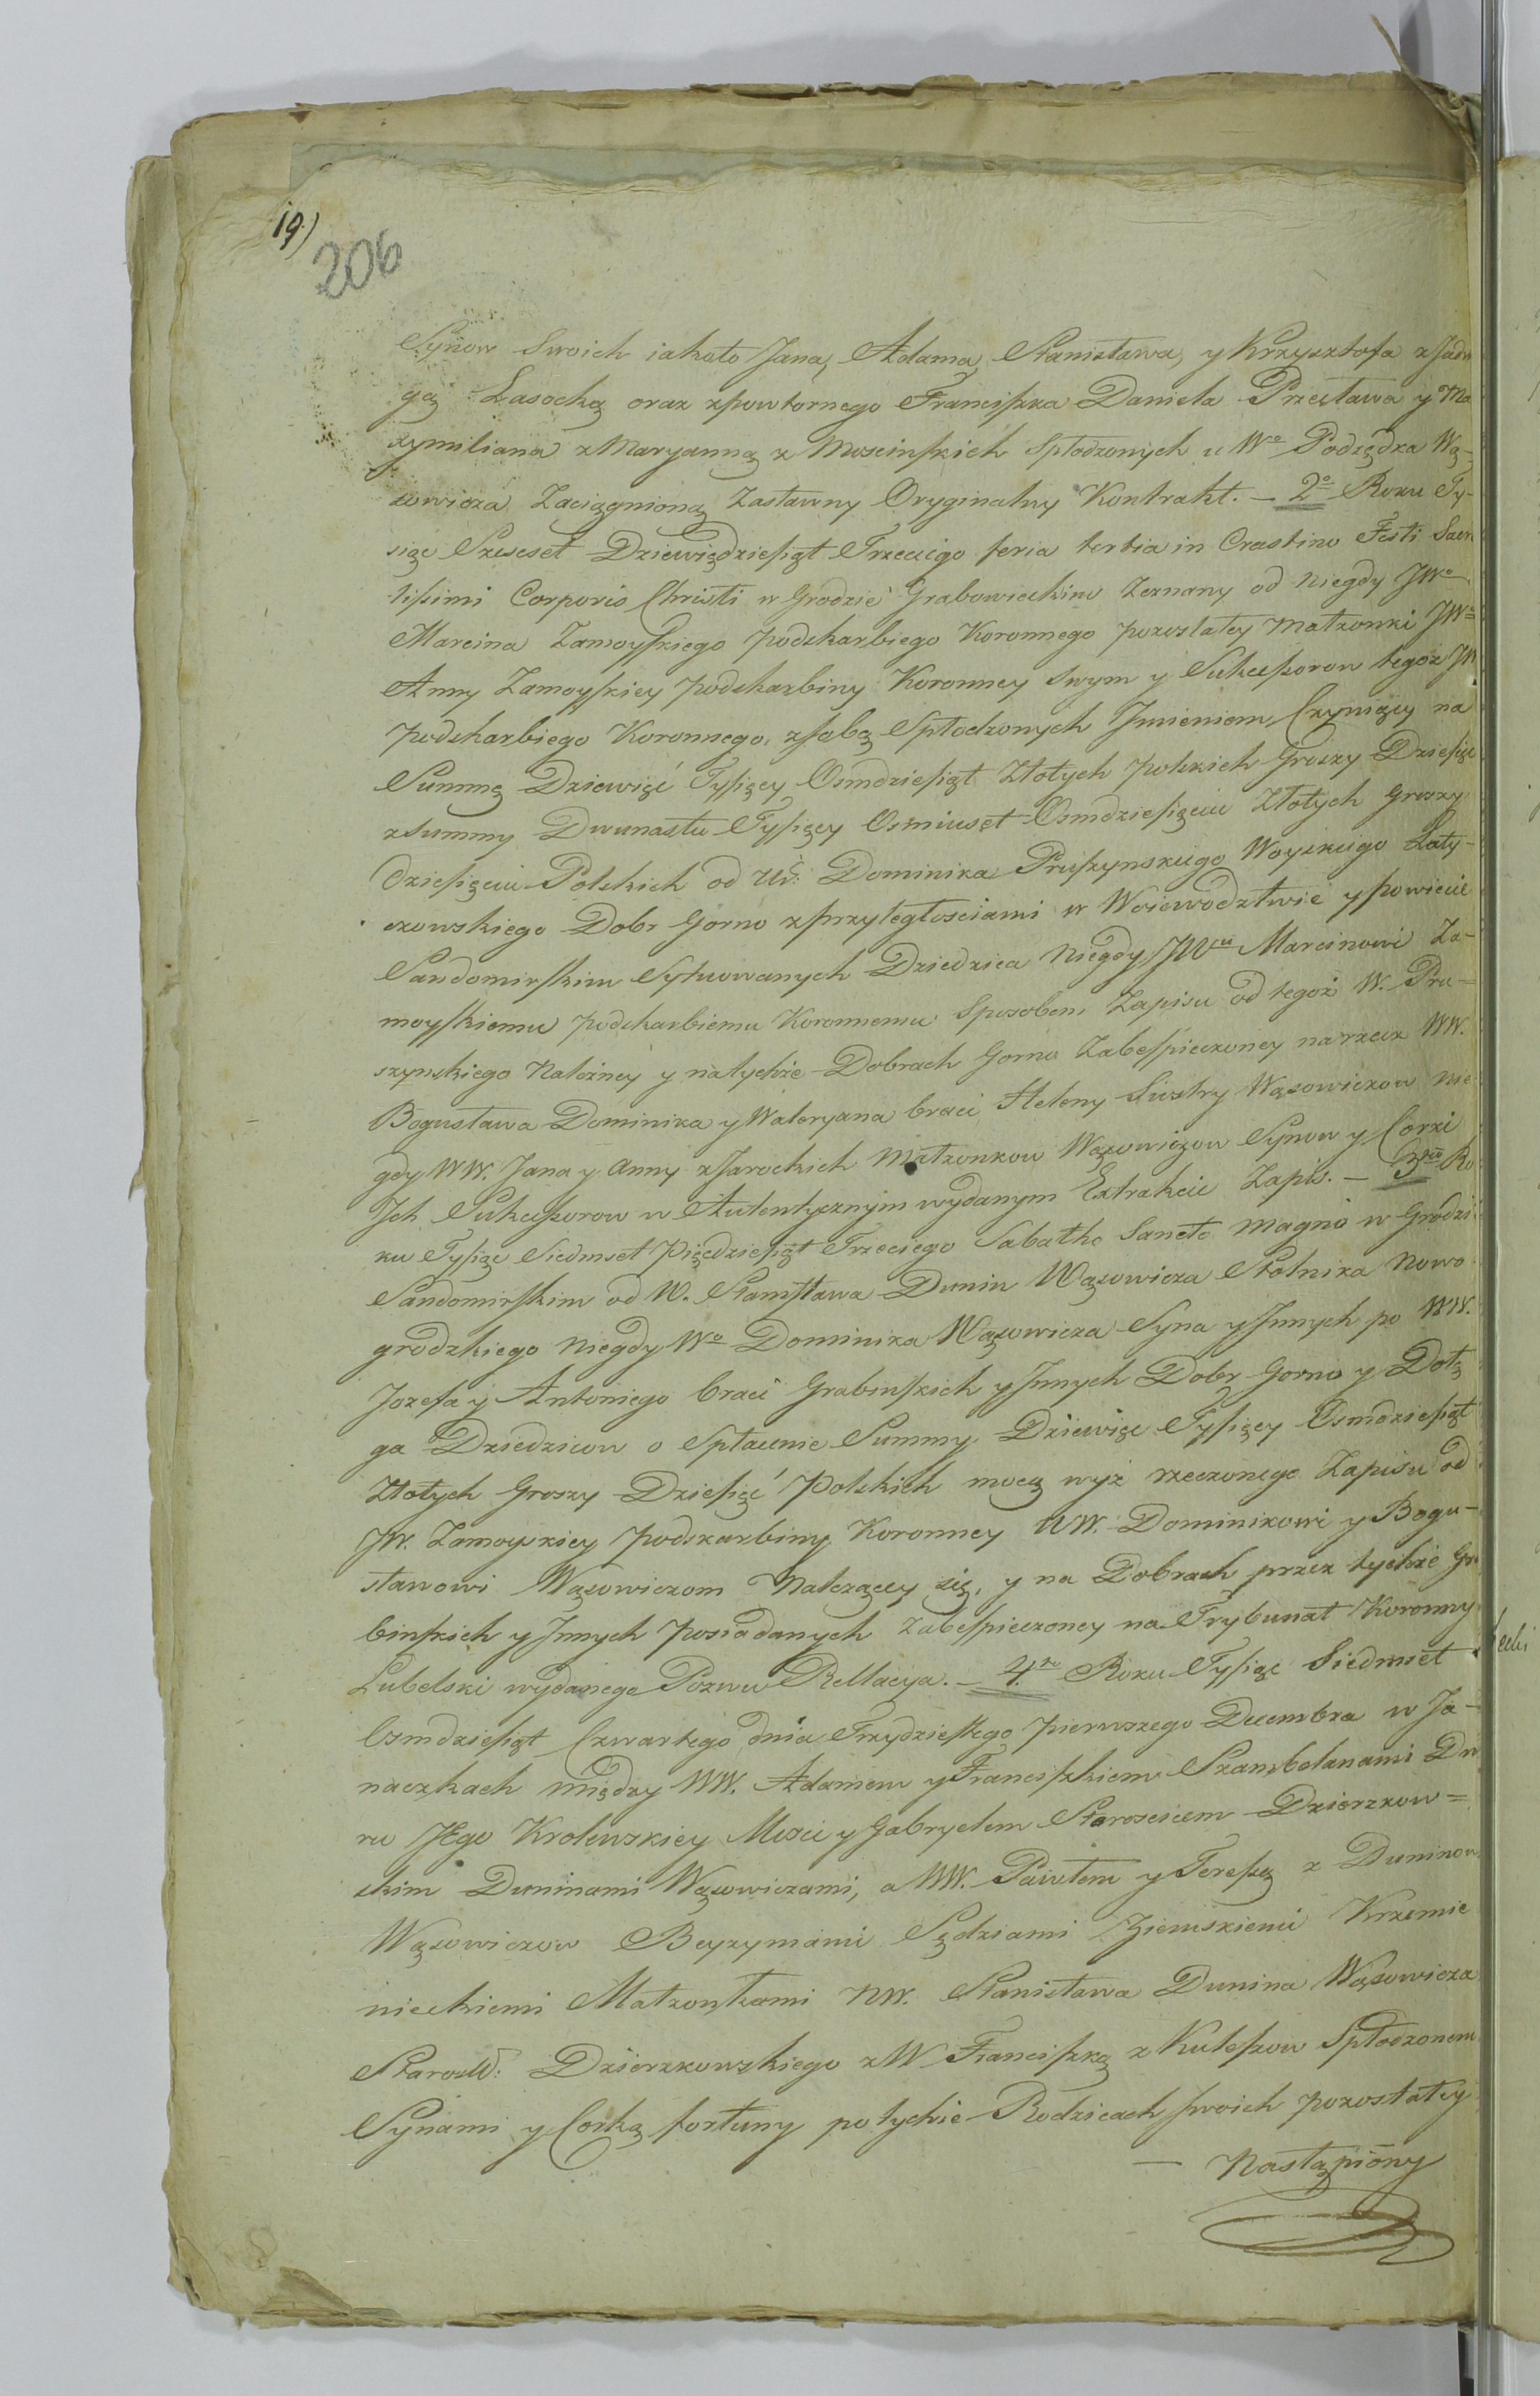 19)
206
Synow Swoich iakoto Jana, Adama, Stanisława, y Krzysztofa z Jadw
gą Lasocką oraz zpowtornego Franciszka Daniela Przecława y Ma
xymiliana z Maryanną z Moscinskich Spłodzonych u Wo Podsędka Wą-
sowicza Zaciągnioną Zastawny Oryginalny Kontrakt. — 2o Roku Ty-
siąc Szescset Dziewiędziesiąt Trzeciego feria tertia in Crastino Festi Sacra
tissimi Corporis Christi w Grodzie Grabowieckim Zeznany od niegdy JWo
Marcina Zamoyskiego podskarbiego Koronnego pozostałey Małzonki JWy
Anny Zamoyskiey podskarbiny Koronney Swym y Sukcessorow tegoz JW
podskarbiego Koronnego, z sobą Spłodzonych Jmieniem Czyniący na
Summę Dziewięć Tysięcy Osmdziesiąt Złotych polskich Groszy Dziesięc
z summy Dwunastu Tysięcy Osmiuset Osmdziesięciu Złotych groszy
Dziesięciu Polskich od Ur: Dominika Pruszynskiego Woyskiego Laty-
czowskiego Dobr Gorno z przyległosciami w Woiewodztwie y powiecie
Sandomirskim Sytuowanych Dziedzica Niegdy JWu Marcinowi Za-
moyskiemu podskarbiemu Koronnemu Sposobem Zapisu od tegoż W. Pru-
szynskiego Należney y na tychże Dobrach Gorno Zabespieczoney na rzecz WW.
Bogusława Dominika y Waleryana braci Heleny Siostry Wąsowiczow nie
gdy WW. Jana y Anny z Jarockich Małzonkow Wąsowiczow Synow y Corki
Jch Sukcessorow w Autentycznym wydanym Extrakcie Zapis. — 3tio Ro
ku Tysiąc Siedmset Pięcdziesiąt Trzeciego Sabatho Sancto magno w Grodzi
Sandomirskim od W. Stanisława Dunin Wąsowicza Stolnika Nowo
grodzkiego niegdy Wo Dominika Wąsowicza Syna y Jnnych po WW.
Jozefa y Antoniego braci Grabinskich y Jnnych Dobr Gorno y Dołę
ga Dziedzicow o Spłacenie Summy Dziewięc Tysięcy Osmdziesiąt
Złotych Groszy Dziesięć Polskich mocą wyż rzeczonego Zapisu od
JW. Zamoyskiey podskarbiny Koronney UW. Dominikowi y Bogu-
sławowi Wąsowiczom Nalezącey się, y na Dobrach przez tychże Gra
binskich y Jnnych posiadanych zabespieczoney na Trybunał Koronny
Lubelski wydanego Pozwu Rellacya. — 4to Roku Tysiąc Siedmset
Osmdziesiąt Czwartego dnia Trzydziestego pierwszego Decembra w Ja-
naczkach między WW. Adamem y Franciszkiem Szambelanami Dwo
ru JEgo Krolewskiey Mosci y Gabryelem Staroscicem Dzierzkow=
skim Duninami Wąsowiczami, a WW. Pawłem y Teressą z Duninow
Wąsowiczow Beyzymami Sędziami Ziemskiemi Krzemie
nieckiemi Małzonkami NW. Stanisława Dunina Wąsowicza
Starosty: Dzierzkowskiego z W Franciszką z Kuleszow Spłodzonem
Synami y Corką fortuny po tychże Rodzicach swoich pozostałey
— Nastąpiony